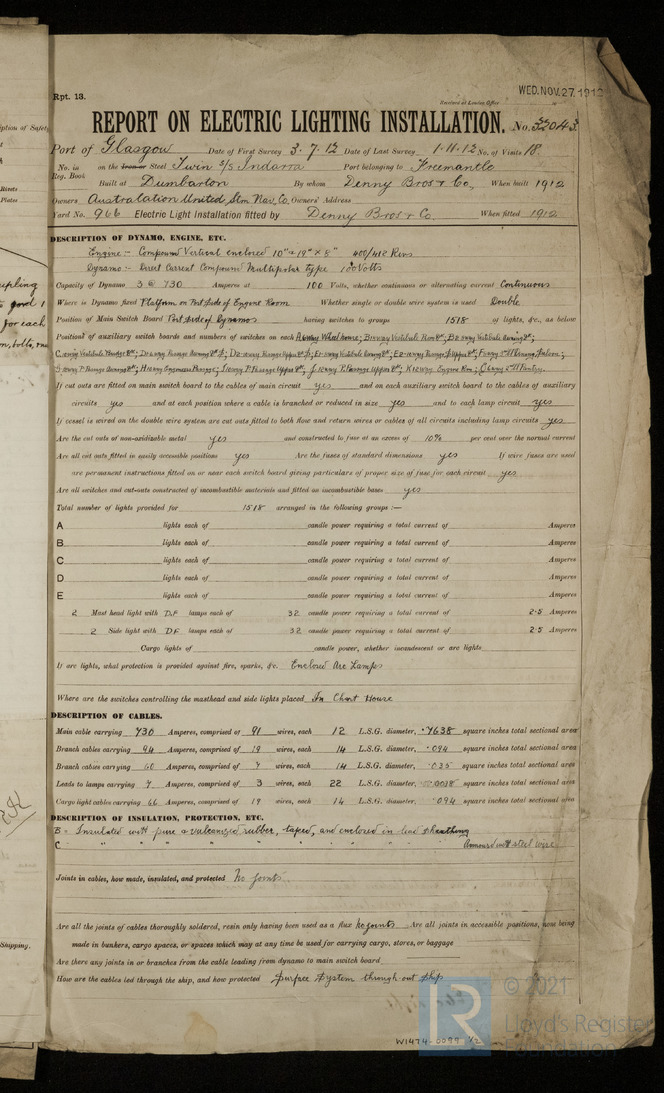 Rpt. 13.
Received at London Office
WED. NOV. 27, 1912
REPORT ON ELECTRIC LIGHTING INSTALLATION. No. 32043
Port of Glasgow Date of First Survey 3.7.12 Date of Last Survey 1.11.12 No. of Visits 18.
No. in Reg. Book on the Iron or Steel Twin S/S Indarra Port belonging to Freemantle
Built at Dumbarton By whom Denny Bros & Co. When built 1912
Owners Australation United Stm Nav. Co. Owners' Address
Yard No. 966 Electric Light Installation fitted by Denny Bros & Co. When fitted 1912
DESCRIPTION OF DYNAMO, ENGINE, ETC.
Engine :- Compound Vertical enclosed 10" & 19" x 8" 400/412 Revs
Dynamo :- Direct Current Compound Multipolar type 100 Volts
Capacity of Dynamo 3 @ 730 Amperes at 100 Volts, whether continuous or alternating current Continuous
Where is Dynamo fixed Platform on Port side of Engine Room Whether single or double wire system is used Double
Position of Main Switch Board Port side of Dynamos having switches to groups 1518 of lights, &c., as below
Positions of auxiliary switch boards and numbers of switches on each
If cut outs are fitted on main switch board to the cables of main circuit yes and on each auxiliary switch board to the cables of auxiliary
circuits yes and at each position where a cable is branched or reduced in size yes and to each lamp circuit yes
If vessel is wired on the double wire system are cut outs fitted to both flow and return wires or cables of all circuits including lamp circuits yes
Are the cut outs of non-oxidizable metal yes and constructed to fuse at an excess of 10% per cent over the normal current
Are all cut outs fitted in easily accessible positions yes Are the fuses of standard dimensions yes If wire fuses are used
are permanent instructions fitted on or near each switch board giving particulars of proper size of fuse for each circuit yes
Are all switches and cut-outs constructed of incombustible materials and fitted on incombustible bases yes
Total number of lights provided for 1518 arranged in the following groups :—
A lights each of candle power requiring a total current of Amperes
B lights each of candle power requiring a total current of Amperes
C lights each of candle power requiring a total current of Amperes
D lights each of candle power requiring a total current of Amperes
E lights each of candle power requiring a total current of Amperes
2 Mast head light with DF lamps each of 32 candle power requiring a total current of 2.5 Amperes
2 Side light with DF lamps each of 32 candle power requiring a total current of 2.5 Amperes
Cargo lights of candle power, whether incandescent or arc lights
If arc lights, what protection is provided against fire, sparks, &c. Enclosed Arc Lamps
Where are the switches controlling the masthead and side lights placed In Chart House
DESCRIPTION OF CABLES.
Main cable carrying 730 Amperes, comprised of 91 wires, each 12 L.S.G. diameter, .7638 square inches total sectional area
Branch cables carrying 94 Amperes, comprised of 19 wires, each 14 L.S.G. diameter, .094 square inches total sectional area
Branch cables carrying 60 Amperes, comprised of 7 wires, each 14 L.S.G. diameter, .035 square inches total sectional area
Leads to lamps carrying 7 Amperes, comprised of 3 wires, each 22 L.S.G. diameter, .0018 square inches total sectional area
Cargo light cables carrying 66 Amperes, comprised of 19 wires, each 14 L.S.G. diameter, .094 square inches total sectional area
DESCRIPTION OF INSULATION, PROTECTION, ETC.
B = Insulated with pure & vulcanized rubber, taped, and enclosed in lead sheathing
C " " " " " " Armoured with steel wire
Joints in cables, how made, insulated, and protected No joints
Are all the joints of cables thoroughly soldered, resin only having been used as a flux No joints Are all joints in accessible positions, none being
made in bunkers, cargo spaces, or spaces which may at any time be used for carrying cargo, stores, or baggage
Are there any joints in or branches from the cable leading from dynamo to main switch board
How are the cables led through the ship, and how protected Surface System through out Ship
W1474-0099 1/2
© 2021
Lloyd's Register
Foundation